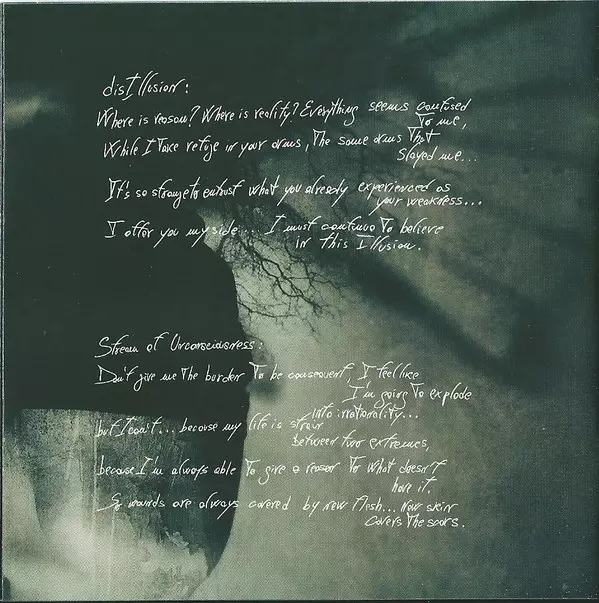 disIllusion:
Where is reason? Where is reality? Everything seems confused
To me,
While I Take refuge in your arms, The same arms That
Slayed me...
IT's so strange to entrust what you already experienced as
your weakness...
I offer you my side... I must continue To believe
in this Illusion.
Stream of Unconsciousness:
Don't give me The burden To be consequent, I feel like
I'm going To explode
into irrationality...
but I can't... because my life is strain
between two extremes,
because I'm always able To give a reason To what doesn't
have it.
So wounds are always covered by new flesh... New skin
covers The scars.